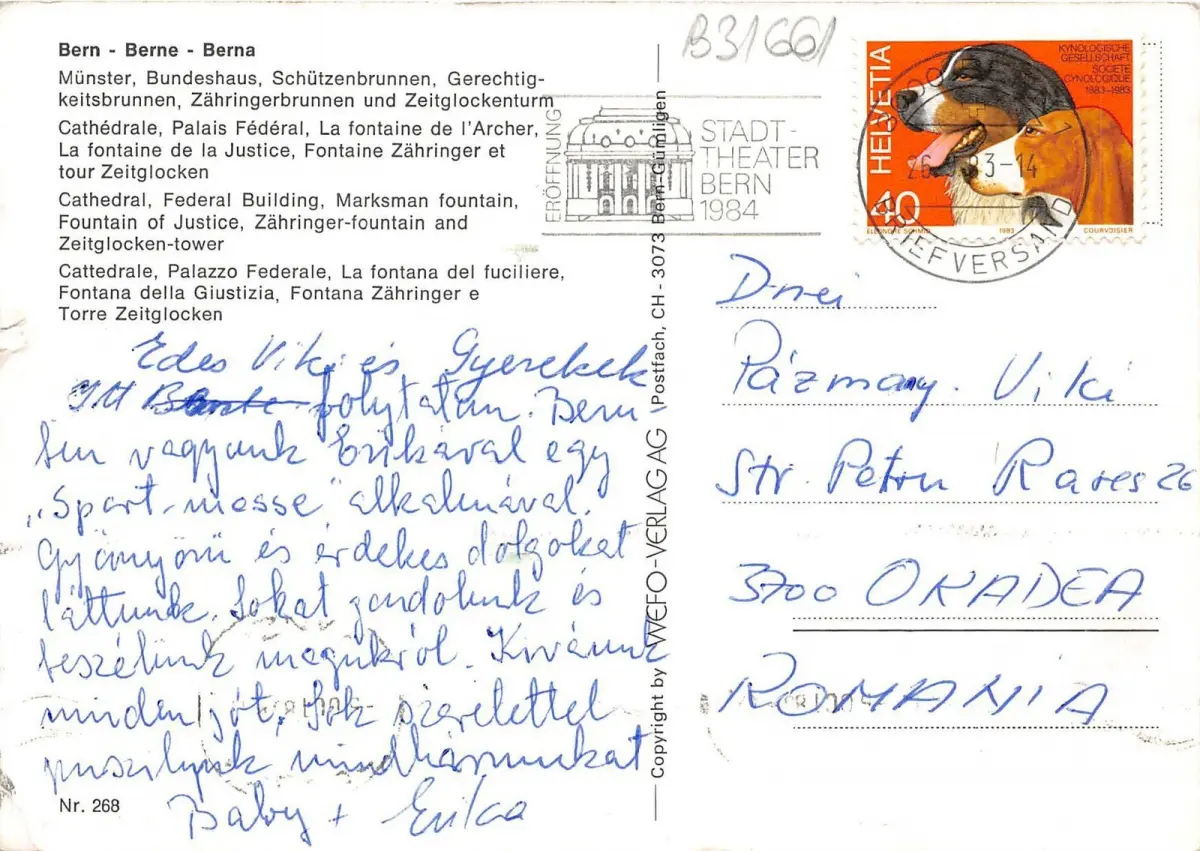 Bern - Berne - Berna
Münster, Bundeshaus, Schützenbrunnen, Gerechtig-
keitsbrunnen, Zähringerbrunnen und Zeitglockenturm
Cathédrale, Palais Fédéral, La fontaine de l'Archer,
La fontaine de la Justice, Fontaine Zähringer et
tour Zeitglocken
Cathedral, Federal Building, Marksman fountain,
Fountain of Justice, Zähringer-fountain and
Zeitglocken-tower
Cattedrale, Palazzo Federale, La fontana del fuciliere,
Fontana della Giustizia, Fontana Zähringer e
Torre Zeitglocken
Edes Viki és Gyerekek
Itt folytatom. Bern-
ben vagyunk Erikával egy
„Sport-messe" alkalmával.
Gyönyörű és érdekes dolgokat
láttunk. Sokat gondolunk és
beszélünk magukról. Kivánunk
minden jót, Sok szeretettel
puszilunk mindhármunkat
Baby + Erika
Nr. 268
Copyright by WEFO-VERLAG AG Postfach, CH - 3073 Bern-Gümligen
B31661
ERÖFFNUNG
STADT-
THEATER
BERN
1984
HELVETIA
40
KYNOLOGISCHE
GESELLSCHAFT
SOCIETE
CYNOLOGIQUE
1883-1983
ELEONORE SCHMID
1983
COURVOISIER
83-14
BRIEFVERSAND
D-nei
Pázmány. Viki
Str. Petru Rares 26
3700 ORADEA
ROMANIA